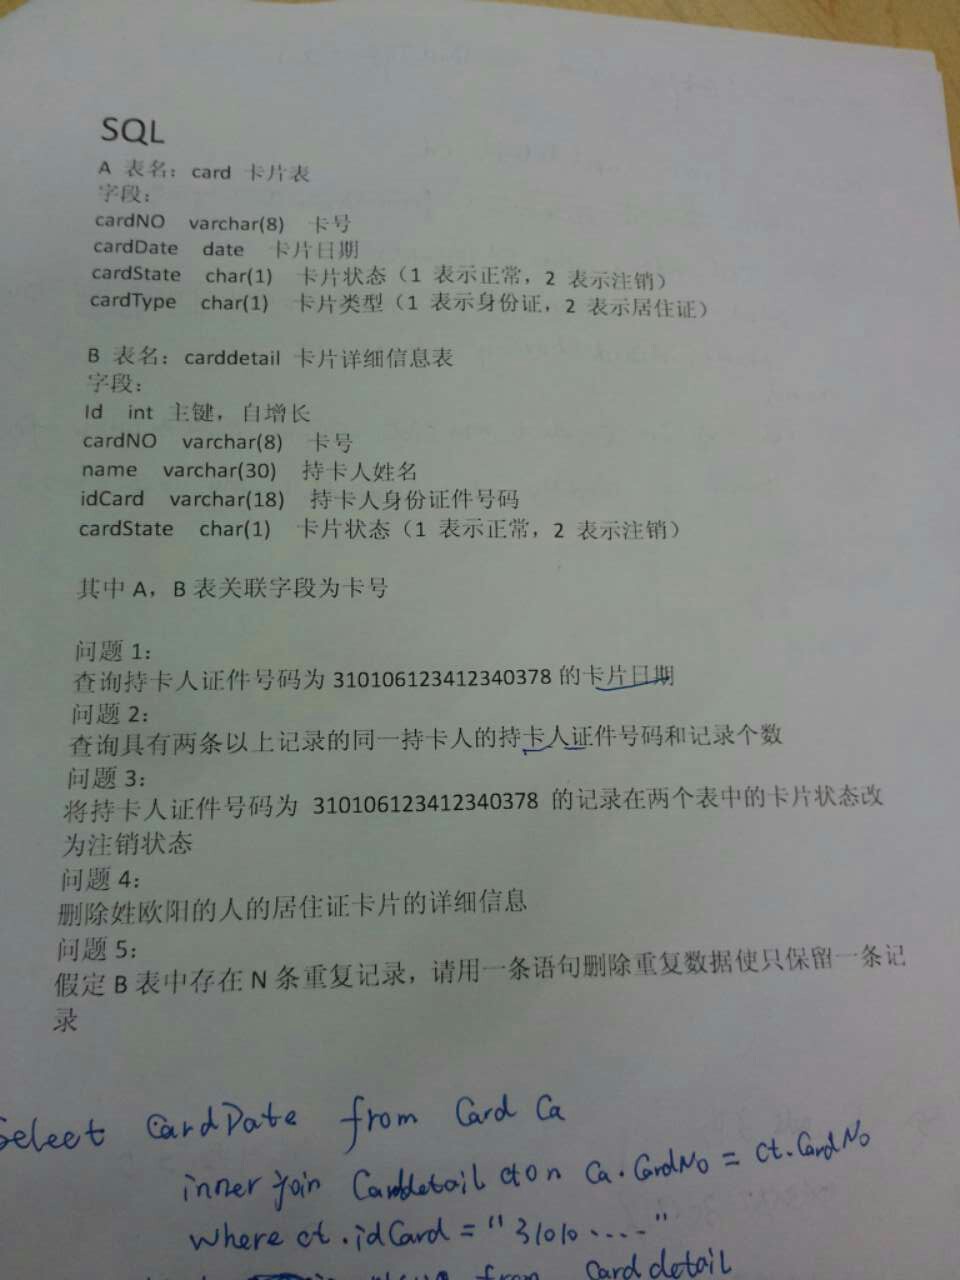 SQL
A 表名：card 卡片表
字段：
cardNO varchar(8) 卡号
cardDate date 卡片日期
cardState char(1) 卡片状态（1 表示正常，2 表示注销）
cardType char(1) 卡片类型（1 表示身份证，2 表示居住证）
B 表名：carddetail 卡片详细信息表
字段：
Id int 主键，自增长
cardNO varchar(8) 卡号
name varchar(30) 持卡人姓名
idCard varchar(18) 持卡人身份证件号码
cardState char(1) 卡片状态（1 表示正常，2 表示注销）
其中 A，B 表关联字段为卡号
问题 1：
查询持卡人证件号码为 310106123412340378 的卡片日期
问题 2：
查询具有两条以上记录的同一持卡人的持卡人证件号码和记录个数
问题 3：
将持卡人证件号码为 310106123412340378 的记录在两个表中的卡片状态改
为注销状态
问题 4：
删除姓欧阳的人的居住证卡片的详细信息
问题 5：
假定 B 表中存在 N 条重复记录，请用一条语句删除重复数据使只保留一条记
录
Select CardDate from Card Ca
inner join Carddetail ct on Ca.CardNo = ct.CardNo
where ct.idCard = "31010....."
from Carddetail